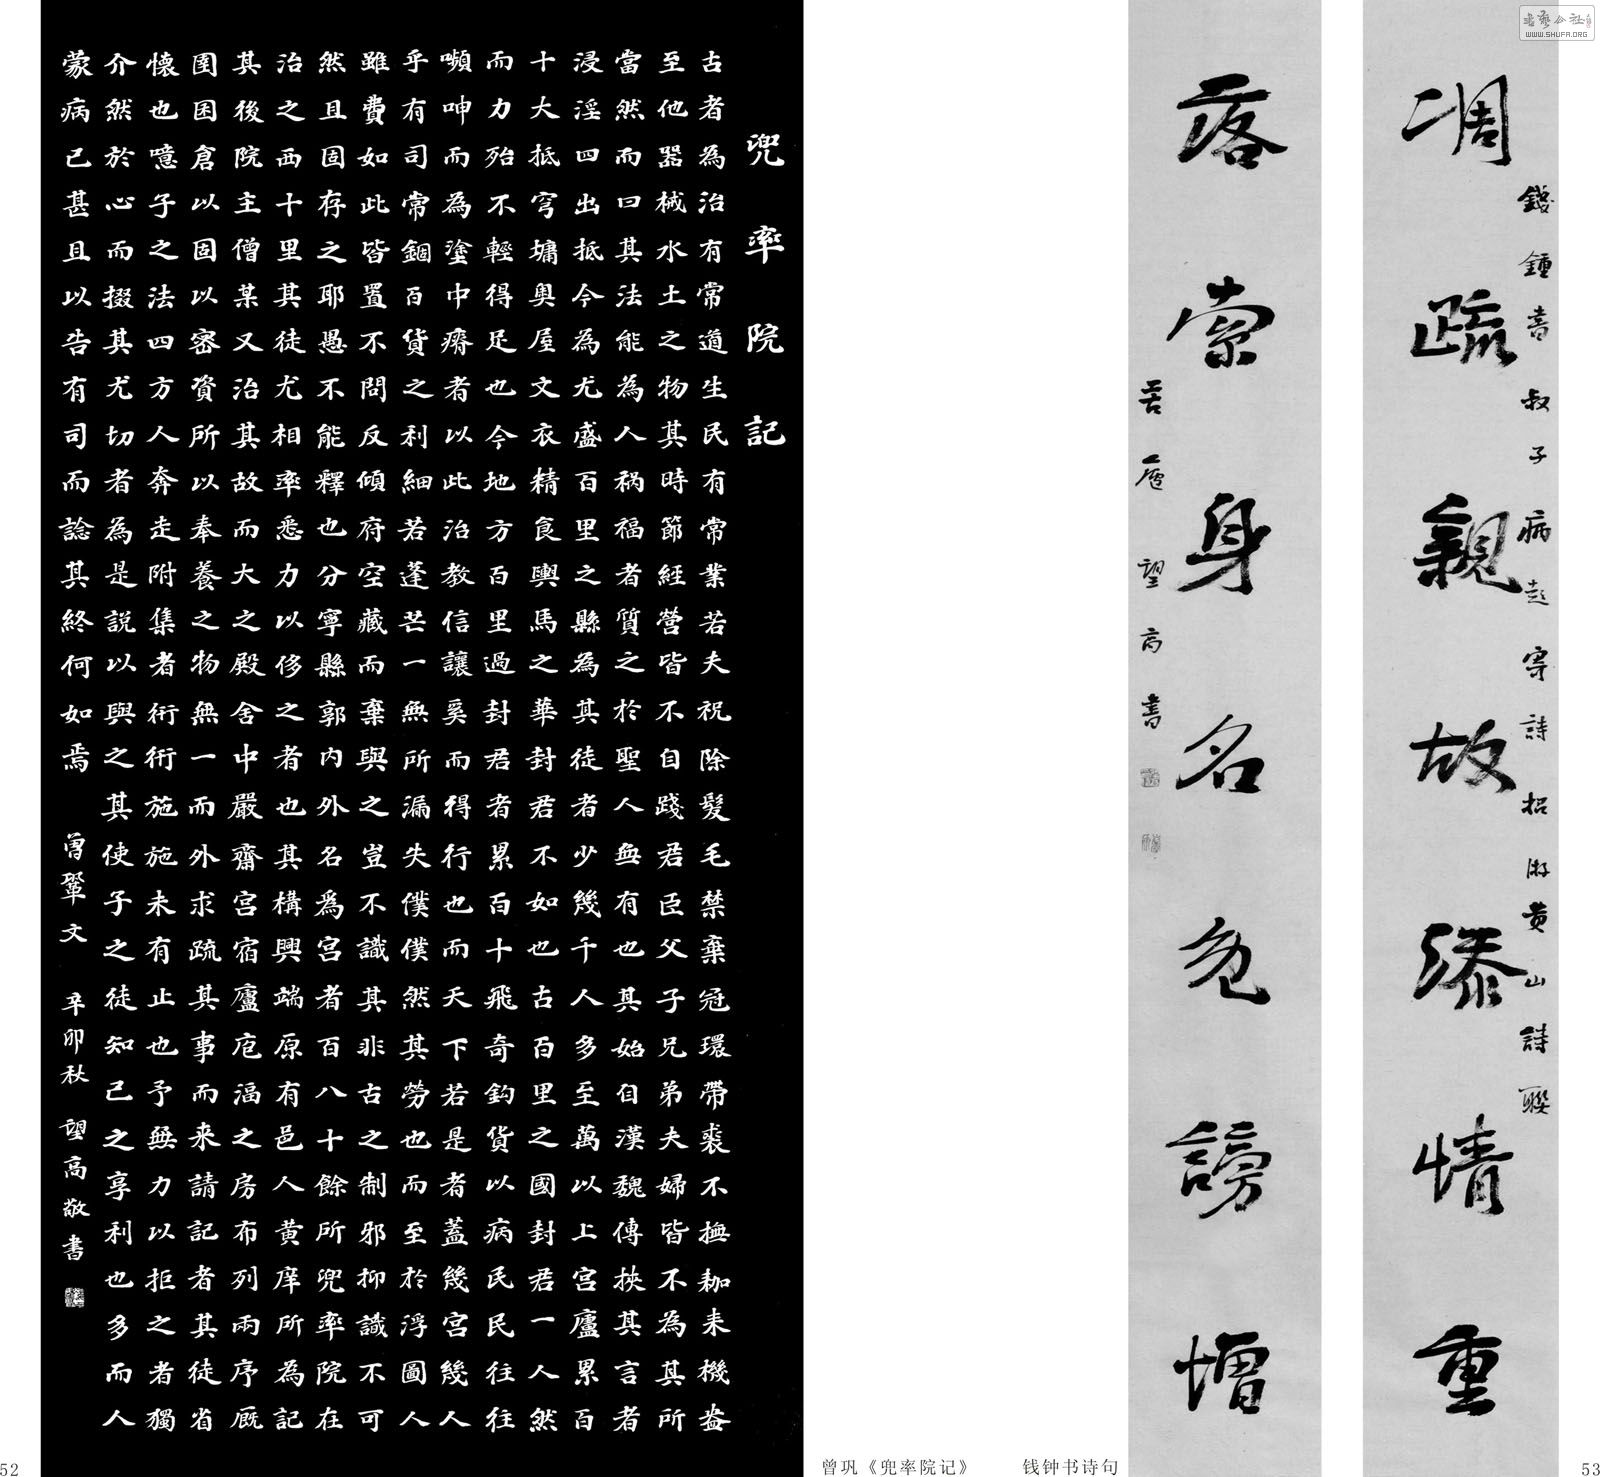 兜率院記
古者為治有常道生民有常業若夫祝除髮毛禁棄冠環帶裘不撫耞耒機盎
至他器械水土之物其時節經營皆不自踐君臣父子兄弟夫婦皆不為其所
當然而曰其法能為人禍福者質之於聖人無有也其始自漢魏傳挾其言者
浸淫四出抵今為尤盛百里之縣為其徒者少幾千人多至萬以上宮廬累百
十大抵穹墉奧屋文衣精食輿馬之華封君不如也古百里之國封君一人然
而力殆不輕得足也今地方百里過封君者累百十飛奇鈎貨以病民民往往
嚬呻而為塗中瘠者以此治教信讓奚而得行也而天下若是者蓋幾宮幾人
乎有司常錮百貨之利細若蓬芒一無所漏失僕僕然其勞也而至於浮圖人
雖費如此皆置不問反傾府空藏而棄與之豈不識其非古之制邪抑識不可
然且固存之耶愚不能釋也分寧縣郭內外名為宮者百八十餘所兜率院在
治之西十里其徒尤相率悉力以侈之者也其構興端原有邑人黃庠所為記
其後院主僧某又治其故而大之殿舍中嚴齋宮宿廬庖湢之房布列兩序厩
圉囷倉以固以密資所以奉養之物無一而外求疏其事而来請記者其徒省
懷也噫子之法四方人奔走附集者衎衎施施未有止也予無力以拒之者獨
介然於心而掇其尤切者為是説以與之其使子之徒知己之享利也多而人
蒙病已甚且以告有司而諗其終何如焉 曾鞏文 辛卯秋 望高敬書
52
曾巩《兜率院记》
錢鍾書叔子病起寄詩招游黄山詩聯
凋疏親故添情重
落索身名免謗增
望高書
钱钟书诗句
53
书艺公社
WWW.SHUFA.ORG